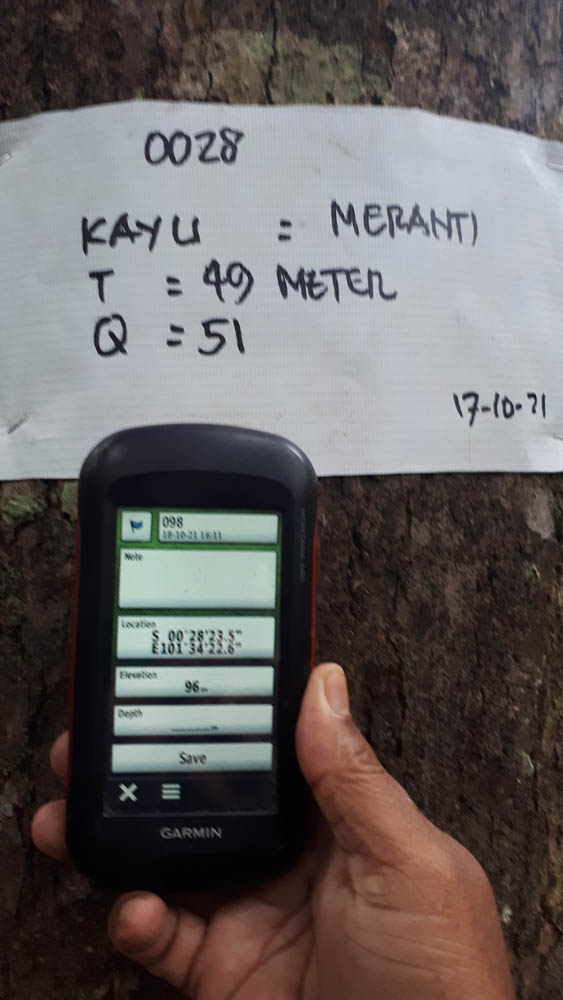 0028
KAYU = MERANTI
T = 49 METER
Q = 51
17-10-21
098
18-10-21 16:11
Note
Location
S 00°28'23.5"
E101°34'22.6"
Elevation
96m
Depth
m
Save
GARMIN